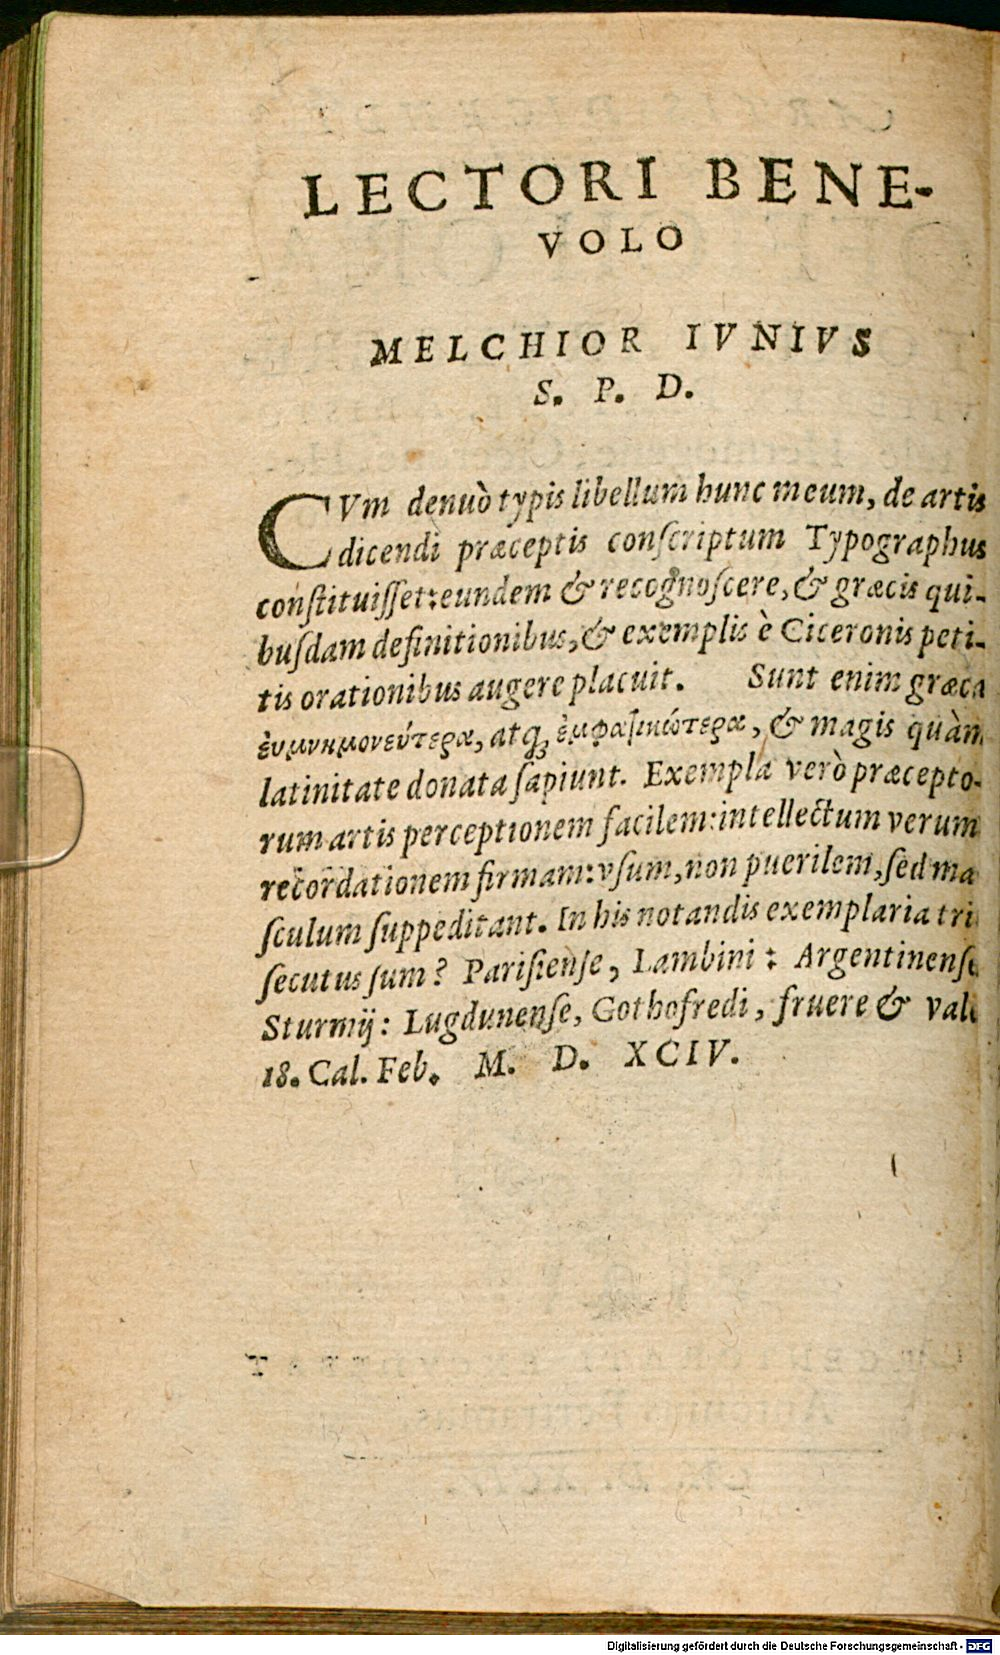 LECTORI BENE-
VOLO
MELCHIOR IVNIVS
S. P. D.
CVm denuò typis libellum hunc meum, de artis
dicendi præceptis conſcriptum Typographus
conſtituiſſet: eundem & recognoſcere, & græcis qui-
buſdam definitionibus, & exemplis è Ciceronis peti-
tis orationibus augere placuit. Sunt enim græca
ἐυμνημονεύτερα, atq; ἐμφατικώτερα, & magis quàm
latinitate donata ſapiunt. Exempla verò præcepto-
rum artis perceptionem facilem: intellectum verum
recordationem firmam: vſum, non puerilem, ſed ma
ſculum ſuppeditant. In his notandis exemplaria tri
ſecutus ſum? Pariſienſe, Lambini: Argentinenſe
Sturmij: Lugdunenſe, Gothofredi, fruere & vale
18. Cal. Feb. M. D. XCIV.
Digitalisierung gefördert durch die Deutsche Forschungsgemeinschaft - DFG